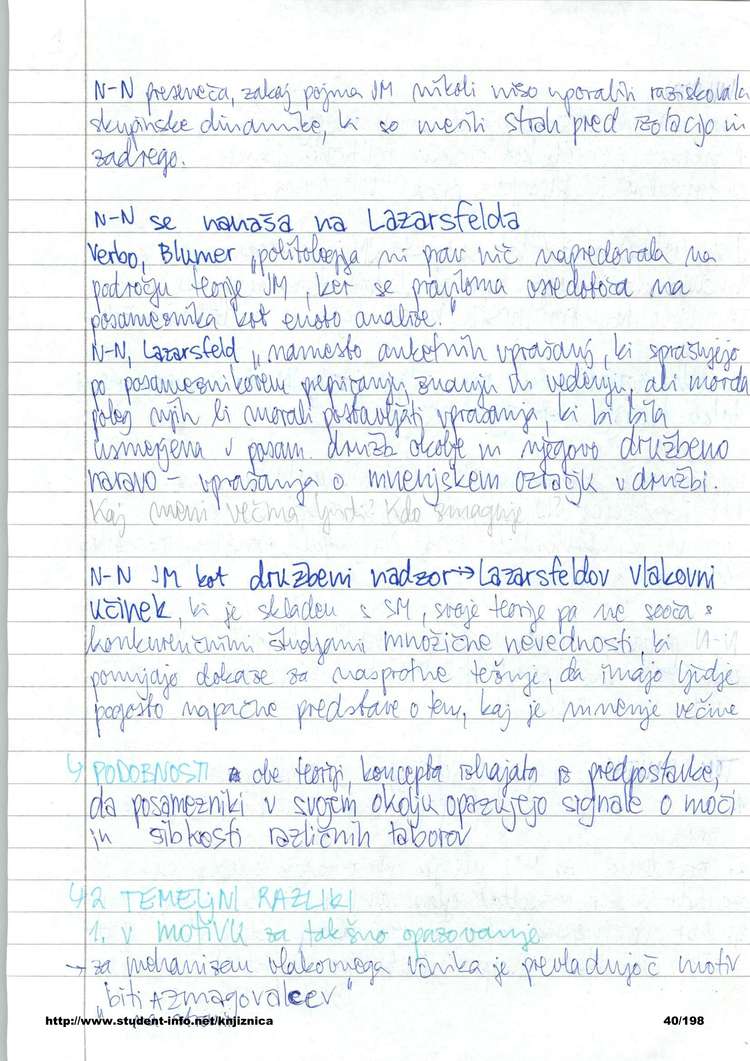 N-N preseneča, zakaj pojma JM nikoli niso uporabili raziskovalci
skupinske dinamike, ki so merili strah pred izolacijo in
zadrego.
N-N se nanaša na Lazarsfelda
Verbo, Blumer „politologija ni prav nič napredovala na
področju teorije JM, ker se praviloma osredotoča na
posameznika kot enoto analize."
N-N, Lazarsfeld „namesto anketnih vprašanj, ki sprašujejo
po posameznikovem prepričanju, znanju in vedenju, ali morda
poleg njih bi morali postavljati vprašanja, ki bi bila
usmerjena v posam. družb okolje in njegovo družbeno
naravo - vprašanja o mnenjskem ozračju v družbi.
Kaj meni večina ljudi? Kdo zmaguje ...?
N-N JM kot družbeni nadzor → Lazarsfeldov vlakovni
učinek, ki je skladen s SM, svoje teorije pa ne sooča s
konkurenčnimi študijami množične nevednosti, ki
ponujajo dokaze za nasprotne težnje, da imajo ljudje
pogosto napačne predstave o tem, kaj je mnenje večine
↳ PODOBNOSTI obe teoriji, koncepta izhajata iz predpostavke,
da posamezniki v svojem okolju opazujejo signale o moči
in šibkosti različnih taborov
↳ 2 TEMELJNI RAZLIKI
1. v MOTIVU za takšno opazovanje
→ za mehanizem vlakovnega učinka je prevladujoč motiv
"biti zmagovalcev"
http://www.student-info.net/knjiznica 40/198